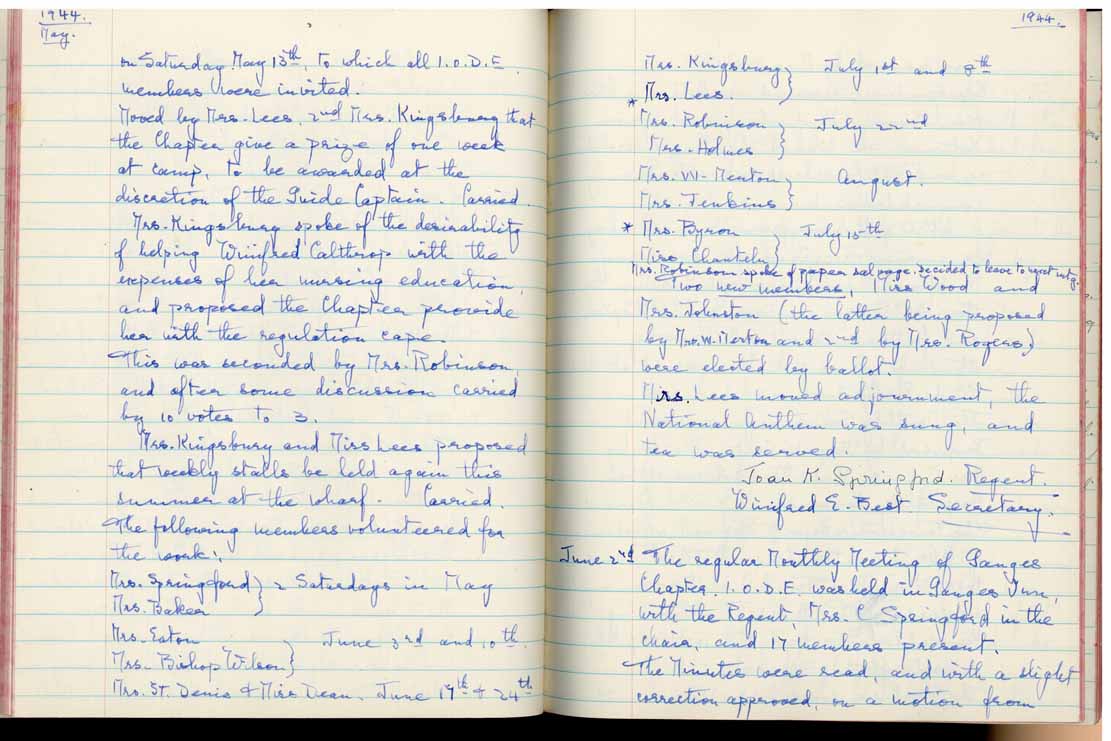 1944.
May.
on Saturday May 13th, to which all I.O.D.E.
members were invited.
Moved by Mrs. Lees, 2nd Mrs. Kingsburg that
the Chapter give a prize of one week
at camp, to be awarded at the
discretion of the Guide Captain. Carried.
Mrs. Kingsburg spoke of the desirability
of helping Winifred Calthrop with the
expenses of her nursing education,
and proposed the Chapter provide
her with the regulation cape.
This was seconded by Mrs. Robinson,
and after some discussion carried
by 10 votes to 3.
Mrs. Kingsbury and Miss Lees proposed
that weekly stalls be held again this
summer at the wharf. Carried.
The following members volunteered for
the work:
Mrs. Springford } 2 Saturdays in May
Mrs. Baker
Mrs. Eaton } June 3rd and 10th.
Mrs. Bishop Wilson
Mrs. St. Denis & Miss Dean. June 17th & 24th
1944.
Mrs. Kingsburg } July 1st and 8th
* Mrs. Lees.
Mrs. Robinson } July 22nd
Mrs. Holmes
Mrs. W-Merton } August.
Mrs. Jenkins
* Mrs. Byron } July 15th
Miss Chantelu
Mrs. Robinson spoke of paper salvage. Decided to leave to next mtg.
Two new members, Miss Wood and
Mrs. Johnston (the latter being proposed
by Mrs. W. Merton and 2nd by Mrs. Rogers)
were elected by ballot.
Mrs. Lees moved adjournment, the
National Anthem was sung, and
tea was served.
Joan K. Springford. Regent.
Winifred E. Best Secretary.
June 2nd The regular Monthly Meeting of Ganges
Chapter. I.O.D.E. was held in Ganges Inn,
with the Regent, Mrs. C Springford in the
chair, and 17 members present.
The Minutes were read, and with a slight
correction approved, on a motion from